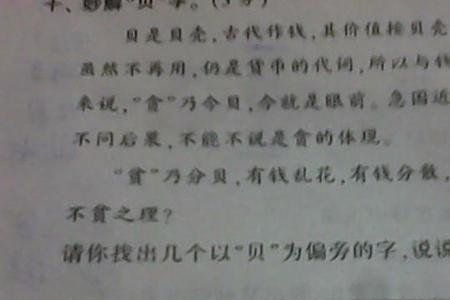 十、妙解“贝”字。(5分)
贝是贝壳,古代作钱,其价值按贝壳
虽然不再用,仍是货币的代词,所以与钱
来说,“贪”乃今贝,今就是眼前。急图近
不问后果,不能不说是贪的体现。
“贫”乃分贝,有钱乱花,有钱分散,
不贫之理?
请你找出几个以“贝”为偏旁的字,说说